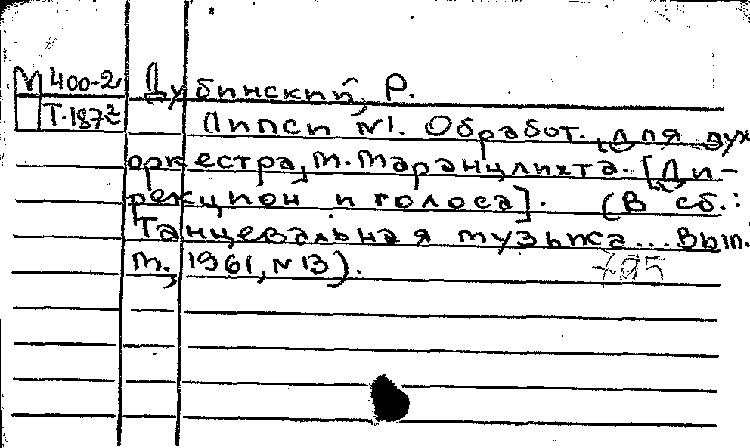 М 400-2 Дубинский, Р.
Т-187² Липси №1. Обработ. для дух
оркестра, т. Таранцлихта. [Ди-
рекцион и голоса]. (В сб.:
Танцевальная музыка... Вып.
М., 1961, №13). 705